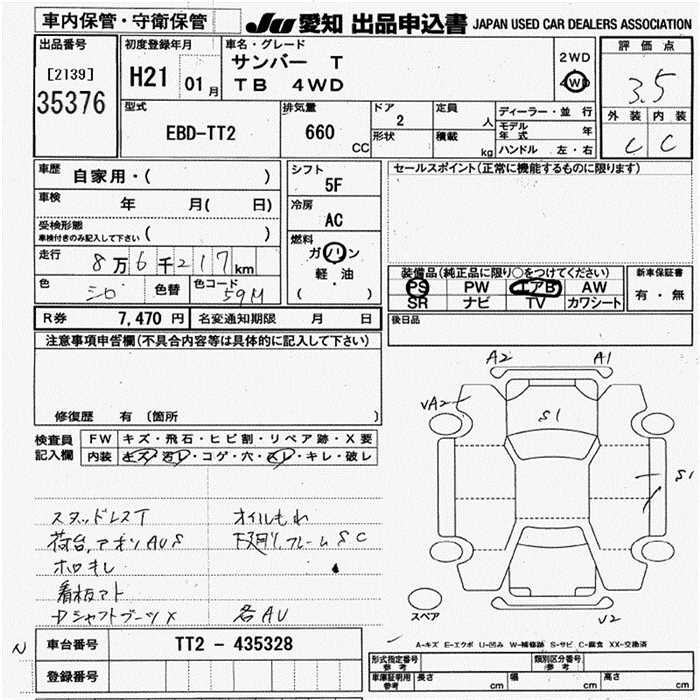 車内保管・守衛保管
JU 愛知 出品申込書 JAPAN USED CAR DEALERS ASSOCIATION
出品番号
[2139]
35376
初度登録年月
H21 01月
車名・グレード
サンバー T
TB 4WD
2WD
4WD
評価点
3.5
外装 内装
C C
型式
EBD-TT2
排気量
660 CC
ドア
2
形状
定員
人
積載
kg
ディーラー・並 行
モデル年式 年
ハンドル 左・右
車歴
自家用・( )
車検
年 月( 日)
受検形態
車検付きのみ記入して下さい ( )
走行
8万6千217km
色
シロ
色替
色コード
59M
シフト
5F
冷房
AC
燃料
ガソリン
軽・油
( )
セールスポイント(正常に機能するものに限ります)
装備品(純正品に限り○をつけてください)
PS PW エアB AW
SR ナビ TV カワシート
新車保証書
有・無
R券 7,470円 名変通知期限 月 日
後日品
注意事項申告欄(不具合内容等は具体的に記入して下さい)
修復歴 有 〔箇所 〕
検査員
記入欄
FW キズ・飛石・ヒビ割・リペア跡・X要
内装 キズ・汚レ・コゲ・穴・スレ・キレ・破レ
スタッドレスT オイルもれ
荷台,アオリAUS 下廻り,フレームSC
ホロキレ
看板アト
DシャフトブーツX 各AU
A2 A1
VA2
S1
S1
V2
スペア
A-キズ E-エクボ U-凹み W-補修跡 S-サビ C-腐食 XX-交換済
N
車台番号 TT2 - 435328
登録番号
形式指定番号
参考
類別区分番号
参考
車庫証明用
参考
長さ cm 幅 cm 高さ cm